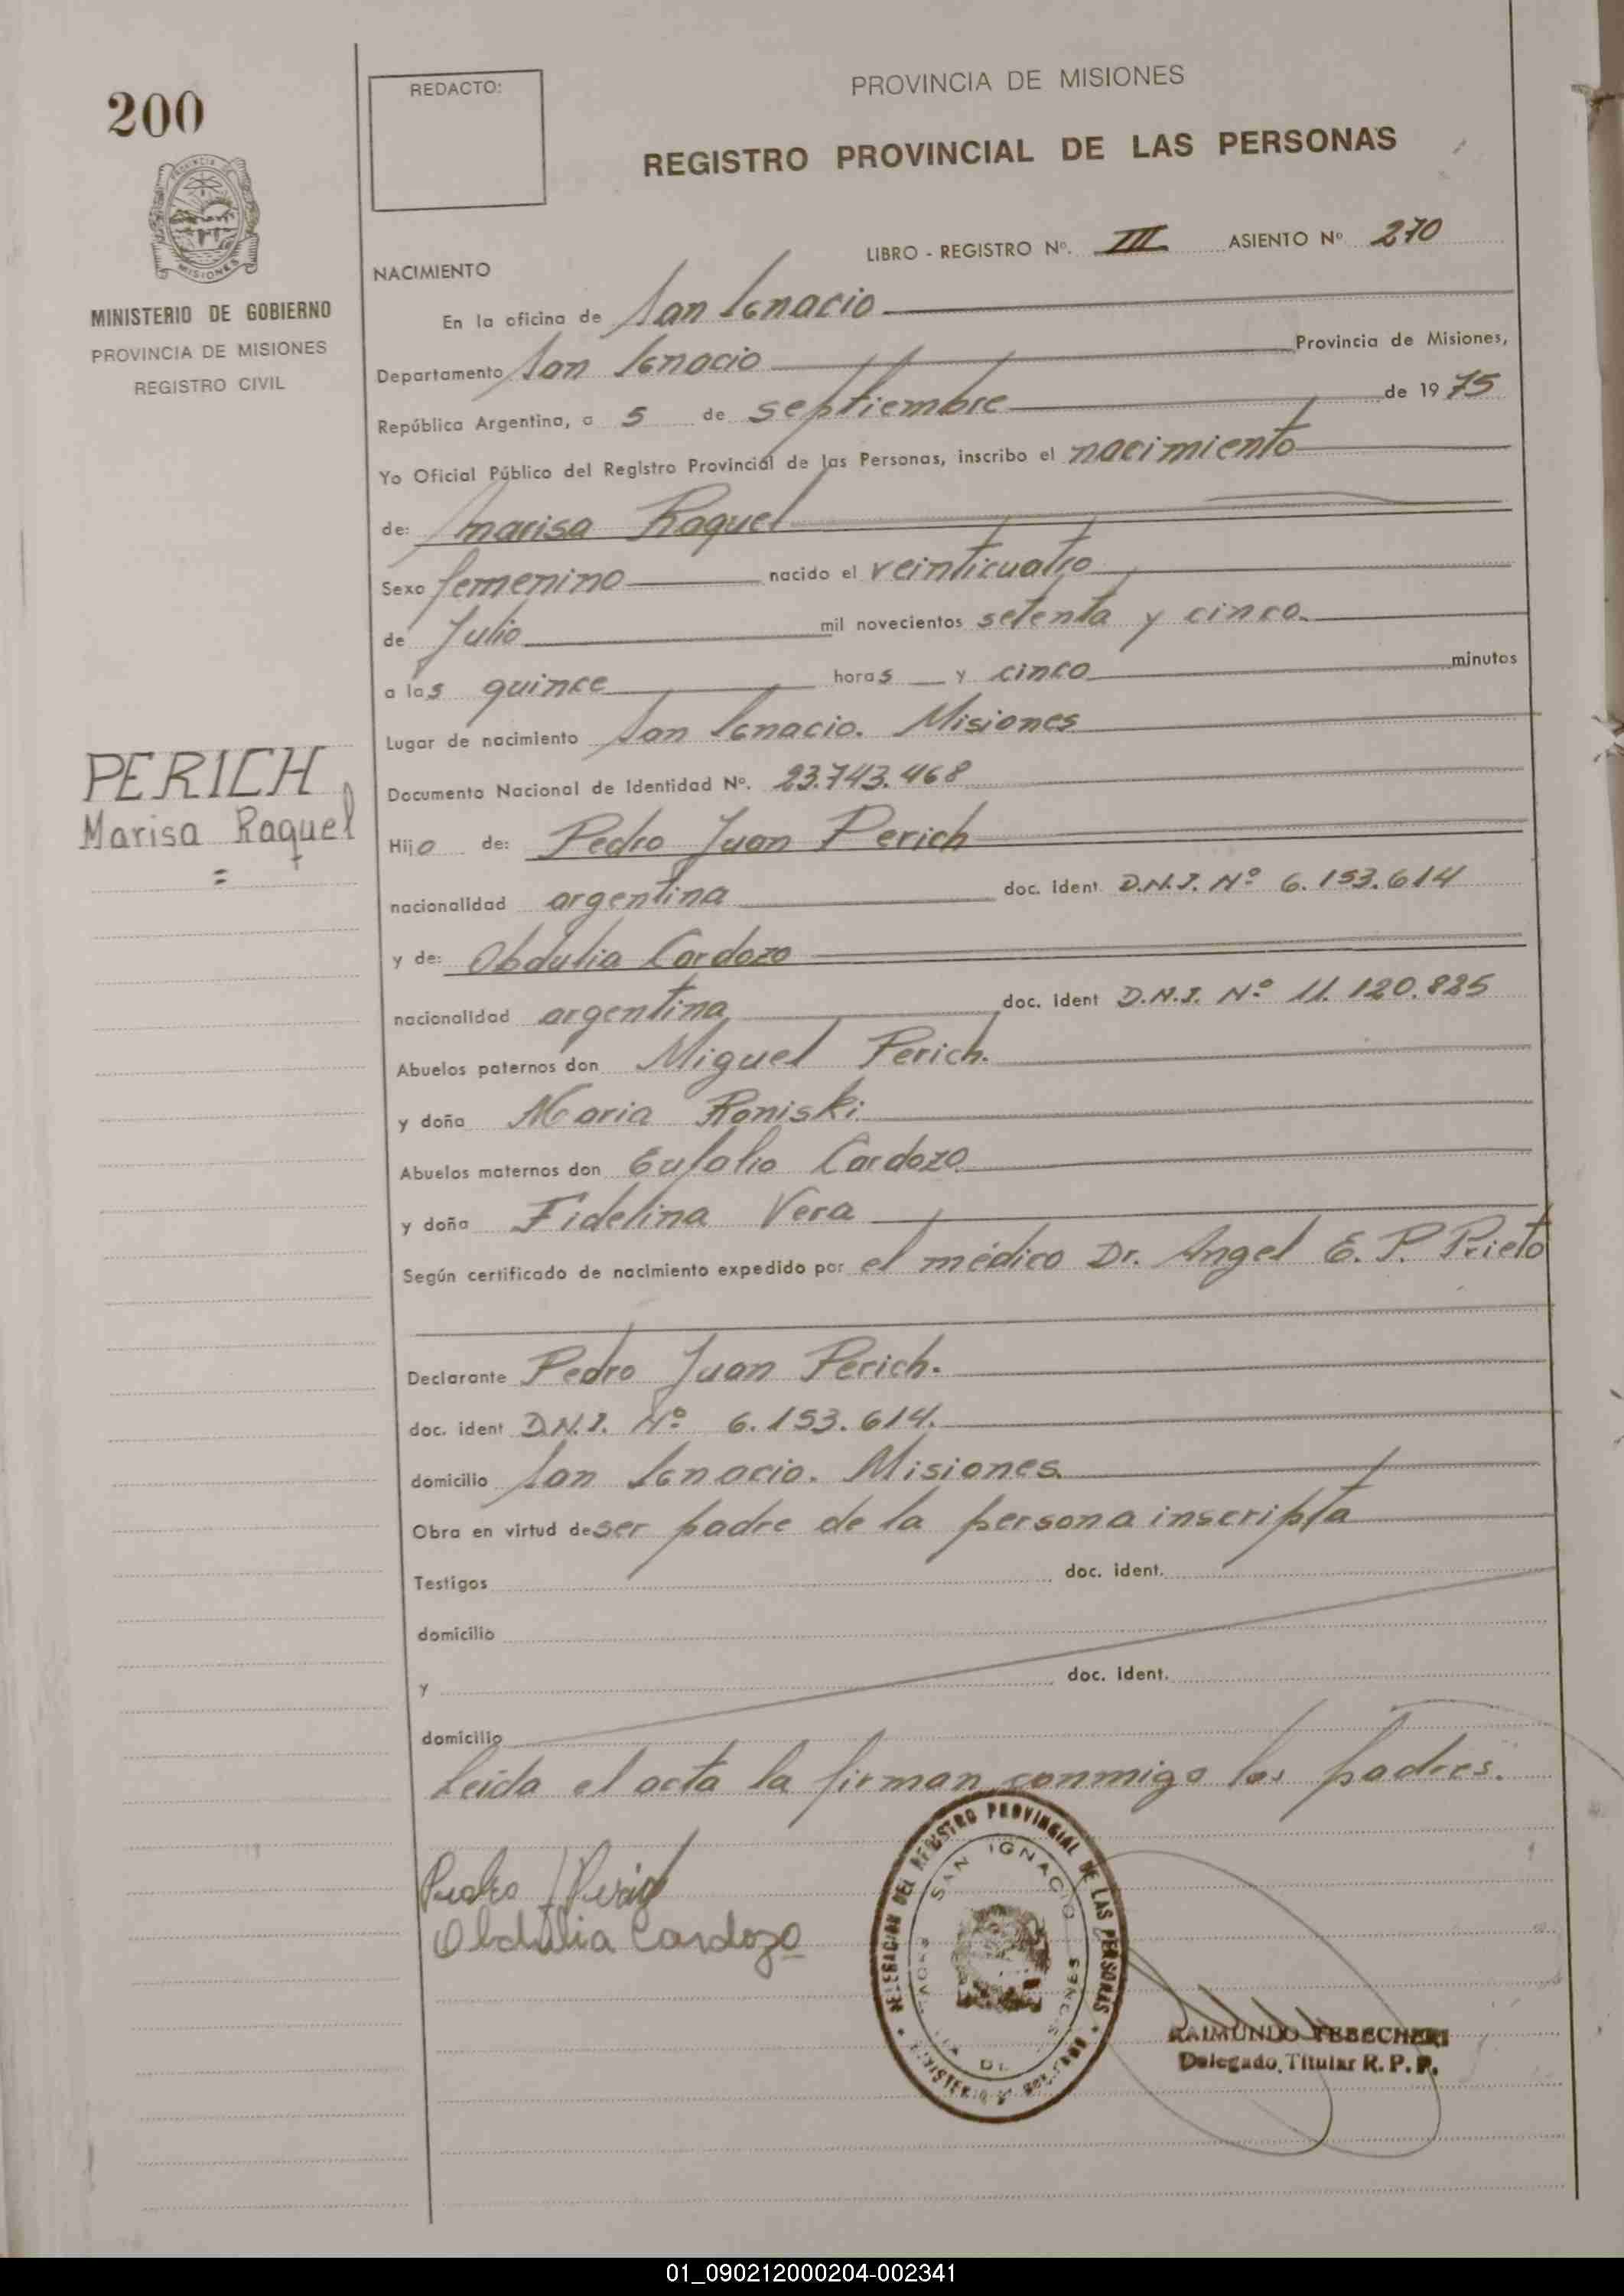 200
REDACTO:
PROVINCIA DE MISIONES
REGISTRO PROVINCIAL DE LAS PERSONAS
PROVINCIA DE
MISIONES
MINISTERIO DE GOBIERNO
PROVINCIA DE MISIONES
REGISTRO CIVIL
LIBRO - REGISTRO Nº. III ASIENTO Nº 270
NACIMIENTO
En la oficina de San Ignacio
Departamento San Ignacio Provincia de Misiones,
República Argentina, a 5 de septiembre de 1975
Yo Oficial Público del Registro Provincial de las Personas, inscribo el nacimiento
de: Marisa Raquel
Sexo femenino nacido el veinticuatro
de Julio mil novecientos setenta y cinco.
a las quince horas y cinco minutos
Lugar de nacimiento San Ignacio. Misiones
PERICH
Marisa Raquel
=
Documento Nacional de Identidad Nº. 23.743.468
Hija de: Pedro Juan Perich
nacionalidad argentina doc. ident D.N.I. Nº 6.153.614
y de: Obdulia Cardozo
nacionalidad argentina doc. ident D.N.I. Nº 11.120.825
Abuelos paternos don Miguel Perich.
y doña Maria Roniski
Abuelos maternos don Eufalio Cardozo
y doña Fidelina Vera
Según certificado de nacimiento expedido por el médico Dr. Angel E. P. Prieto
Declarante Pedro Juan Perich.
doc. ident D.N.I. Nº 6.153.614.
domicilio San Ignacio. Misiones.
Obra en virtud de ser padre de la persona inscripta
Testigos doc. ident.
domicilio
y doc. ident.
domicilio
Leída el acta la firman conmigo los padres.
Pedro J Perich
Obdulia Cardozo
DELEGACION DEL REGISTRO PROVINCIAL DE LAS PERSONAS
SAN IGNACIO
MISIONES
MINISTERIO DE GOBIERNO
RAIMUNDO YEBECHERI
Delegado Titular R. P. P.
01_090212000204-002341